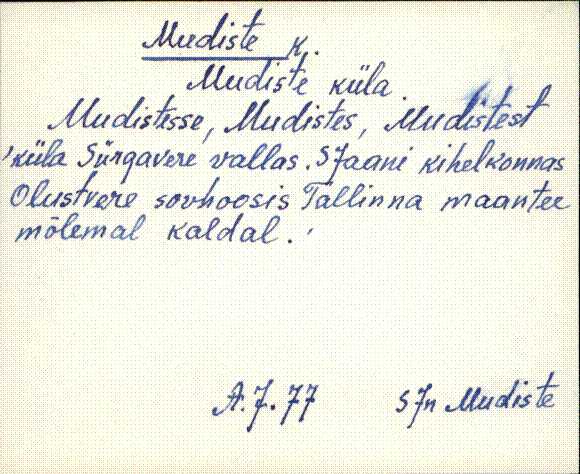 Mudiste k.
Mudiste küla
Mudistesse, Mudistes, Mudistest
'küla Sürgavere vallas. SJaani kihelkonnas
Olustvere sovhoosis Tallinna maantee
mõlemal kaldal.'
A.J.77 SJn Mudiste